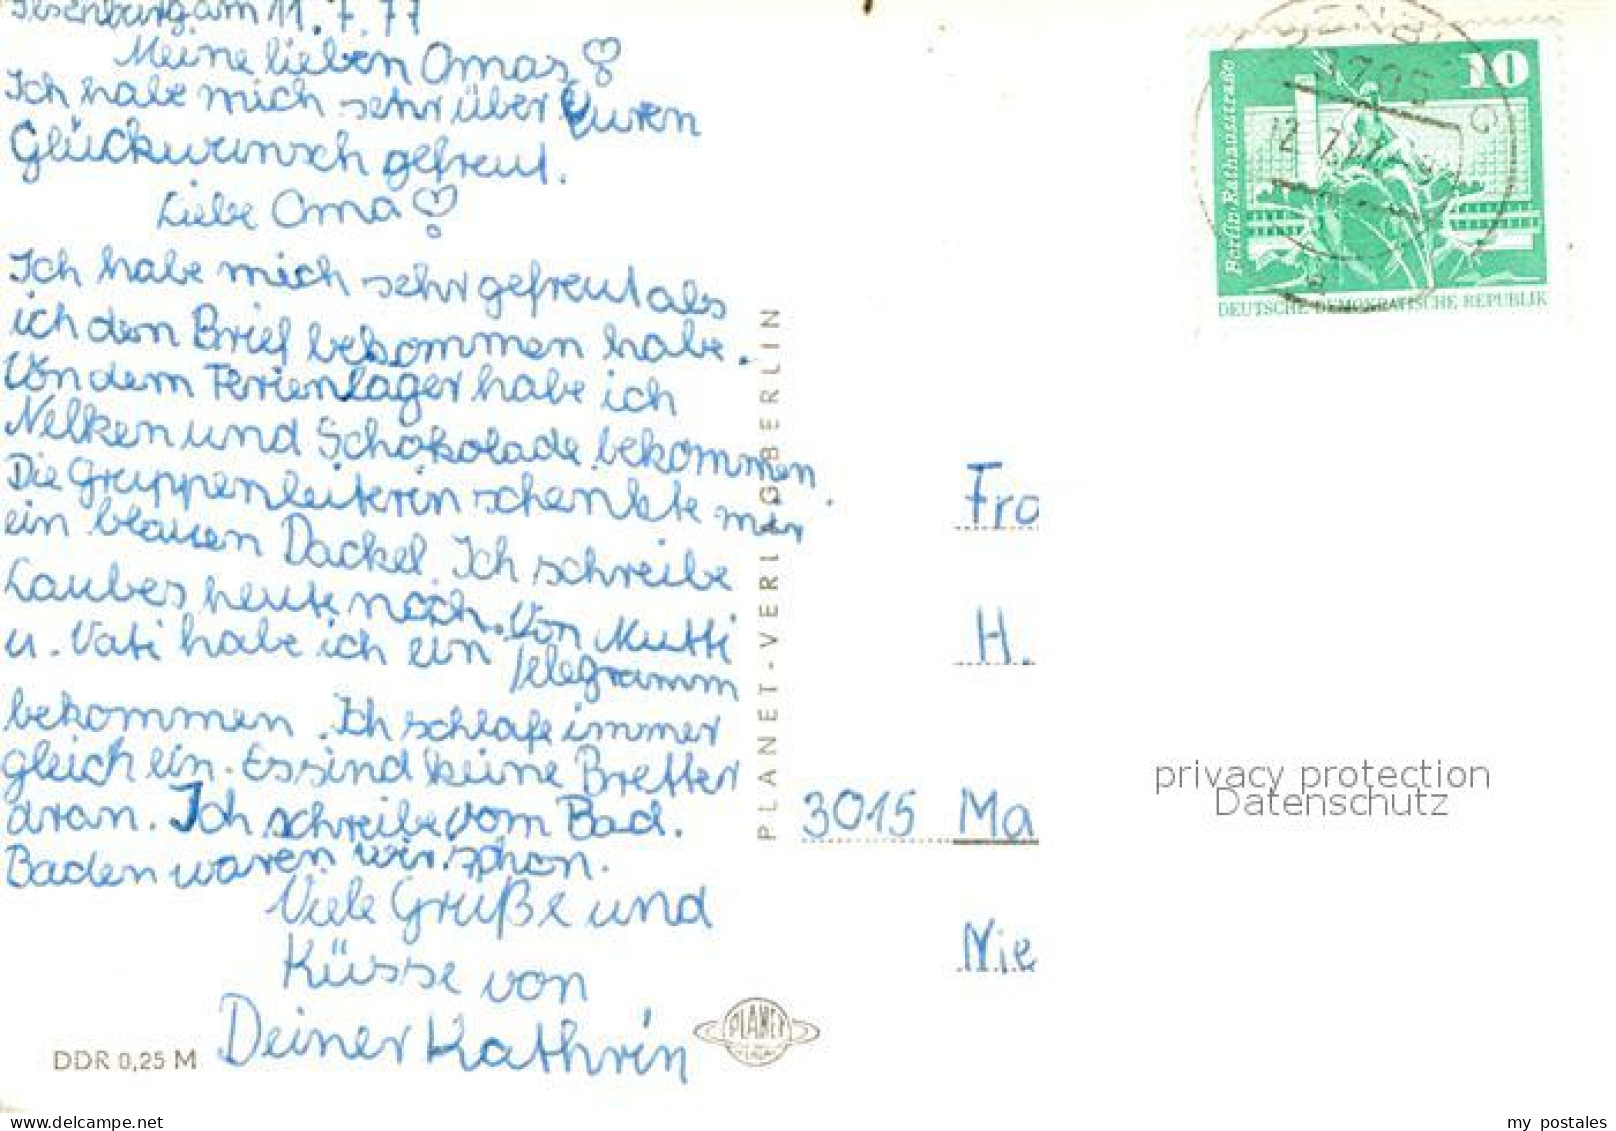 Ilsenburg am 11.7.77
Meine lieben Omas!
Ich habe mich sehr über Euren
Glückwunsch gefreut.
Liebe Oma!
Ich habe mich sehr gefreut als
ich den Brief bekommen habe.
Von dem Ferienlager habe ich
Nelken und Schokolade bekommen.
Die Gruppenleiterin schenkte mir
ein blauen Dackel. Ich schreibe
Laubes heute noch. Von Mutti
u. Vati habe ich ein Telegramm
bekommen. Ich schlafe immer
gleich ein. Es sind keine Bretter
dran. Ich schreibe vom Bad.
Baden waren wir schon.
Viele Grüße und
Küsse von
Deiner Kathrin
DDR 0,25 M
PLANET-VERLAG BERLIN
PLANET
10
Berlin Rathausstraße
DEUTSCHE DEMOKRATISCHE REPUBLIK
3705
12.7.77
Fra
H.
3015 Ma
Nie
privacy protection
Datenschutz
www.delcampe.net
my_postales